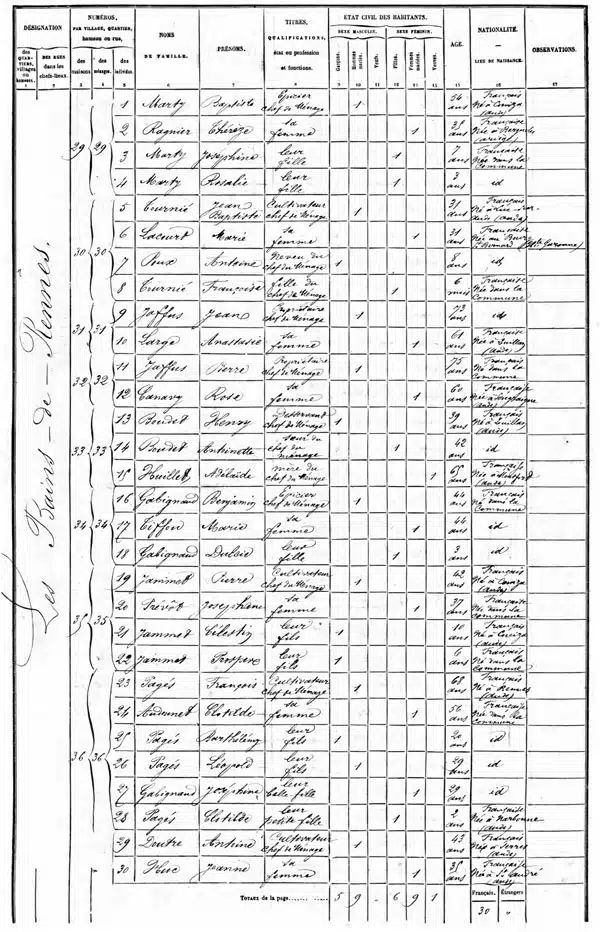 DÉSIGNATION
NUMÉROS,
PAR VILLAGE, QUARTIER,
hameau ou rue,
NOMS
DE FAMILLE.
PRÉNOMS.
TITRES,
QUALIFICATIONS,
état ou profession
et fonctions.
ETAT CIVIL DES HABITANTS.
SEXE MASCULIN. SEXE FÉMININ.
AGE.
NATIONALITÉ.
LIEU DE NAISSANCE.
OBSERVATIONS.
des QUARTIERS, villages ou hameaux.
DES RUES dans les chefs-lieux.
des maisons.
des ménages.
des individus.
Garçons.
Hommes mariés.
Veufs.
Filles.
Femmes mariées.
Veuves.
1 2 3 4 5 6 7 8 9 10 11 12 13 14 15 16 17
Les Bains-de-Rennes.
29 29
1 Marty Baptiste Epicier chef de Ménage 1 54 ans Français Né à Couiza (aude)
2 Thérèze sa femme 1 ans Française
3 Marty Josephine leur fille 1 7 ans Française Née dans la Commune
4 Marty Rosalie leur fille 1 3 ans id
30 30
5 Jean Baptiste Cultivateur chef de Ménage 1 ans Français (aude)
6 Lacourt Marie sa femme 1 31 ans Française (Hte Garonne)
7 Roux Antoine Neveu du chef de Ménage 1 8 ans id
8 Françoise fille du chef de Ménage 1 6 mois Française Née dans la Commune
31 31
9 Jaffus Jean Propriétaire chef de Ménage 1 73 ans id
10 Large Anastasie sa femme 1 61 ans Française Née à Quillan (aude)
32 32
11 Jaffus Pierre Propriétaire chef de Ménage 1 75 ans Français Né dans la Commune
12 Canavy Rose sa femme 1 60 ans Française (aude)
33 33
13 Boudet Henry Desservant chef de Ménage 1 39 ans Français Né à Quillan (aude)
14 Boudet Antoinette sœur du chef du ménage 1 42 ans id
15 Huillet Adélaïde mère du chef du Ménage 1 65 ans Française (aude)
34 34
16 Gabignaud Benjamin Epicier chef de Ménage 1 44 ans Français Né dans la Commune
17 Tiffou Marie sa femme 1 44 ans id
18 Gabignaud leur fille 1 3 ans id
35 35
19 Jammet Pierre Cultivateur chef de Ménage 1 42 ans Français Né à Couiza (aude)
20 Prévôt Josephine sa femme 1 37 ans Française Née dans la commune
21 Jammet Célestin leur fils 1 10 ans Français Né à Couiza (aude)
22 Jammet Prospère leur fils 1 6 ans Français Né dans la Commune
36 36
23 Pagés François Cultivateur chef de Ménage 1 68 ans Français Né à Rennes (aude)
24 Clotilde sa femme 1 56 ans Française Née dans la Commune
25 Pagés Barthélémy leur fils 1 20 ans id
26 Pagés Léopold leur fils 1 29 ans id
27 Gabignaud Josephine leur belle-fille 1 29 ans id
28 Pagés Clotilde leur petite-fille 1 2 ans Française Née à Narbonne (aude)
29 Antoine Cultivateur chef de Ménage 1 43 ans Français Né à Serres (aude)
30 Huc Jeanne sa femme 1 35 ans Française (aude)
TOTAUX de la page 5 9 - 6 9 1
Français. Étrangers
30 "